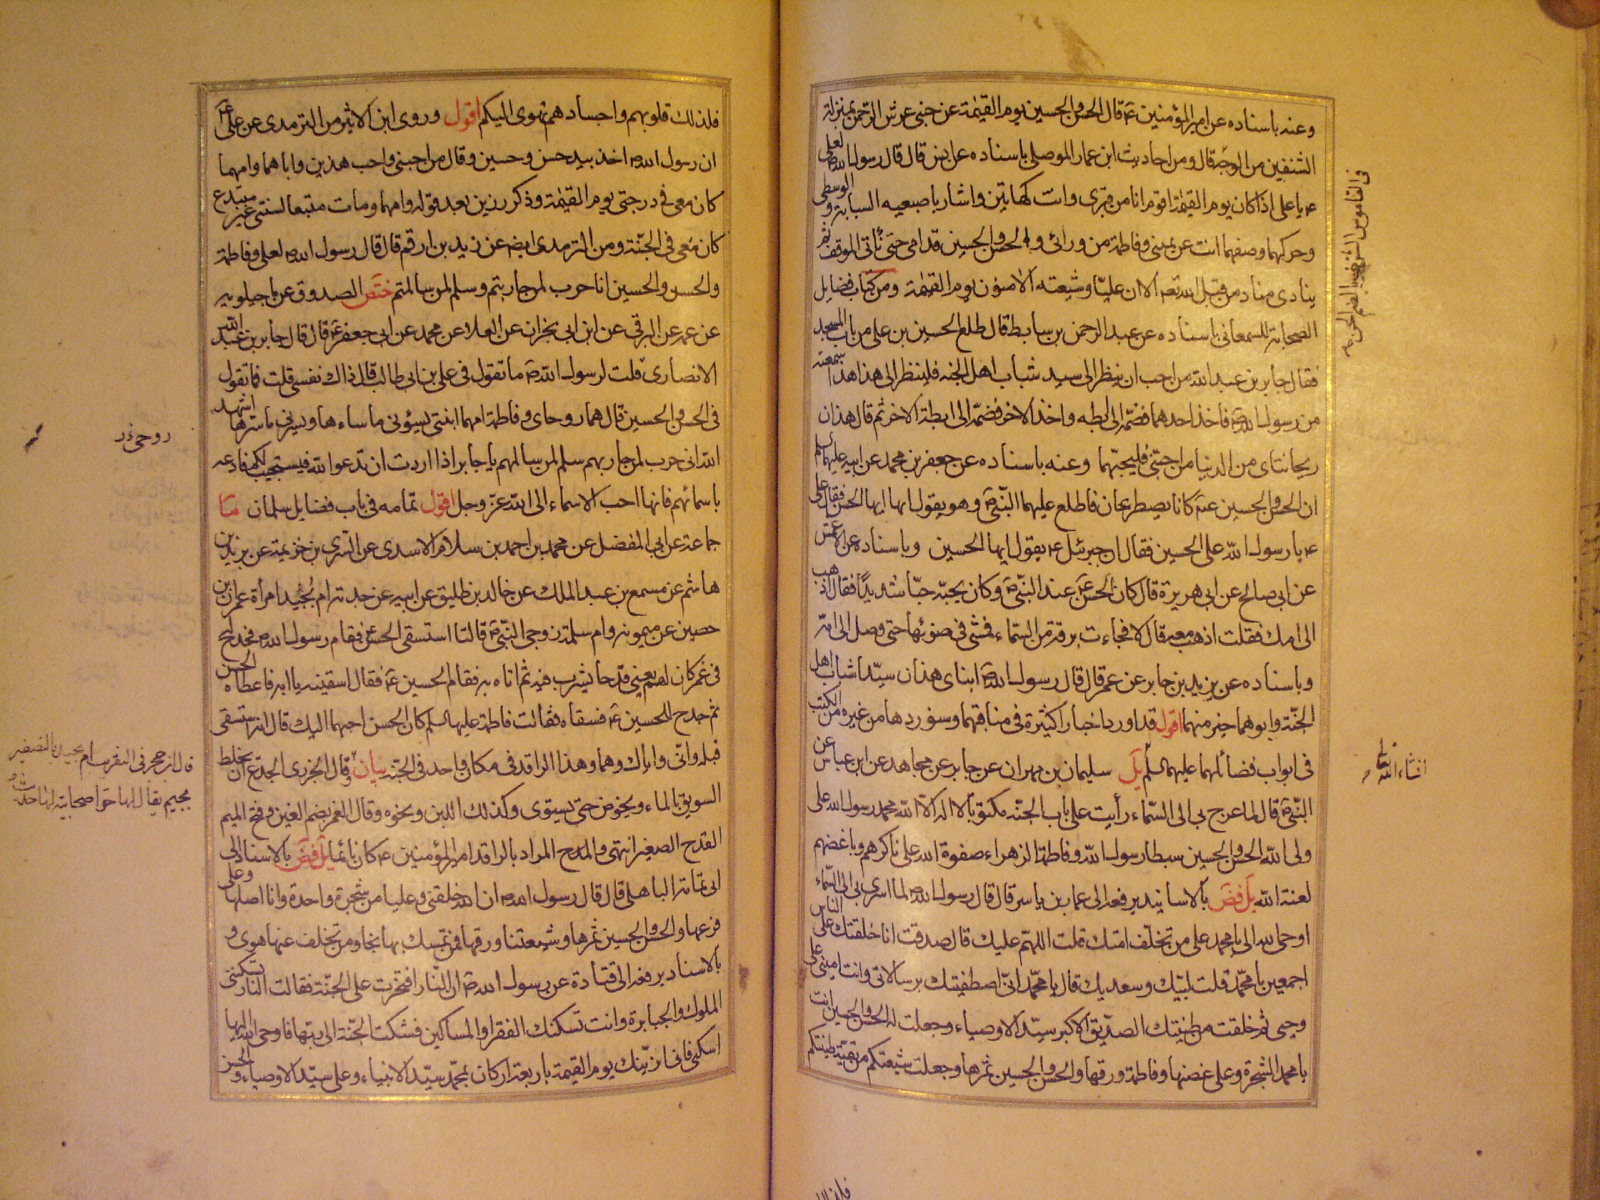 وعنه باسناده عن امير المؤمنين ع قال الحسن والحسين يوم القيمة عن جنبي عرش الرحمن بمنزلة
الشنفين من الوجه قال ومن احاديث ابن عمار الموصلي باسناده عن انس قال قال رسول الله ص لعلي
ع يا علي اذا كان يوم القيمة اقوم انا من قبري وانت كهاتين واشار باصبعيه السبابة والوسطى
وحركهما وصفهما انت عن يميني وفاطمة من ورائي والحسن والحسين قدامي حتى نأتي الموقف ثم
ينادي مناد من قبل الله تعم الا ان عليا وشيعته الامنون يوم القيمة ومن كتاب فضايل
الصحابة للسمعاني باسناده عن عبد الرحمن بن سابط قال طلع الحسين بن علي من باب المسجد
فقال جابر بن عبد الله من احب ان ينظر الى سيد شباب اهل الجنة فلينظر الى هذا سمعته
من رسول الله ص فاخذ احدهما فضمه الى ابطه واخذ الاخر فضمه الى ابطه الاخر ثم قال هذان
ريحانتاي من الدنيا من احبني فليحبهما وعنه باسناده عن جعفر بن محمد عن ابيه عليهما السلم
ان الحسن والحسين ع كانا يصطرعان فاطلع عليهما النبي ص وهو يقول ايها الحسن فقال علي
ع يا رسول الله على الحسين فقال ان جبرئيل ع يقول ايها الحسين وباسناده عن الاعمش
عن ابي صالح عن ابي هريرة قال كان الحسن ع عند النبي ص وكان يحبه حبا شديدا فقال اذهب
الى امك فقلت اذهب معه قال لا فجاءت برقة من السماء فمشى في ضوئها حتى وصل الى امه
وباسناده عن يزيد بن جابر عن عمر قال قال رسول الله ص ابناي هذان سيدا شباب اهل
الجنة وابوهما خير منهما اقول قد اورد اخبارا كثيرة في مناقبهما وسنوردها من غيره من الكتب
في ابواب فضائلهما عليهما السلم يل سليمان بن مهران عن جابر عن مجاهد عن ابن عباس عن
النبي ص قال لما عرج بي الى السماء رأيت على باب الجنة مكتوبا لا اله الا الله محمد رسول الله علي
ولي الله الحسن والحسين سبطا رسول الله وفاطمة الزهراء صفوة الله على ناكرهم وباغضهم
لعنة الله يل فض بالاسانيد يرفعه الى عمار بن ياسر قال قال رسول الله ص لما اسري بي الى السماء
اوحى الله الي يا محمد على من تخلف امتك قلت اللهم عليك قال صدقت انا خلقتك على الناس
اجمعين يا محمد قلت لبيك وسعديك قال يا محمد اني اصطفيتك برسالاتي وانت اميني على
وحيي ثم خلقت من طينتك الصديق الاكبر سيد الاوصياء وجعلت له الحسن والحسين انت
يا محمد الشجرة وعلي غصنها وفاطمة ورقها والحسن والحسين ثمرها وجعلت شيعتكم من بقية طينتكم
انشاء الله تعالى
فلذلك قلوبهم واجسادهم تهوى اليكم اقول وروى ابن الاثير من الترمدي عن علي ع
ان رسول الله ص اخذ بيد حسن وحسين وقال من احبني واحب هذين واباهما وامهما
كان معي في درجتي يوم القيمة وذكر رزين بعد قوله وامهما ومات متبعا لسنتي غير مبتدع
كان معي في الجنة ومن الترمدي ايضا عن زيد بن ارقم قال قال رسول الله لعلي وفاطمة
والحسن والحسين انا حرب لمن حاربتم وسلم لمن سالمتم ختص الصدوق عن ماجيلويه
عن عمه عن البرقي عن ابن ابي نجران عن العلاء عن محمد عن ابي جعفر ع قال قال جابر بن عبد الله
الانصاري قلت لرسول الله ص ما تقول في علي بن ابي طالب قال ذاك نفسي قلت فما تقول
في الحسن والحسين قال هما روحاي وفاطمة امهما ابنتي يسؤني ما ساءها ويسرني ما سرها اشهد
الله اني حرب لمن حاربهم سلم لمن سالمهم يا جابر اذا اردت ان تدعو الله فيستجيب لك فادعه
باسمائهم فانها احب الاسماء الى الله عز وجل اقول تمامه في باب فضايل سلمان ما
جماعة عن ابي المفضل عن محمد بن احمد بن سلام الاسدي عن السري بن خزيمة عن يزيد بن
هاشم عن مسمع بن عبد الملك عن خالد بن طليق عن ابيه عن جدته ام بجيد امرأة عمران بن
حصين عن ميمونة وام سلمة زوجي النبي ص قالتا استسقى الحسن ع فقام رسول الله ص فجدح
في غمر كان لهم يعني قدحا يشرب فيه ثم اتاه به فقام الحسين ع فقال اسقنيه يا ابه فاعطاه الحسن
ثم جدح للحسين ع فسقاه فقالت فاطمة عليها السلم كان الحسن احبهما اليك قال انه استسقى
قبله واني واياك وهما وهذا الراقد في مكان واحد في الجنة بيان قال الجزري الجدح ان يخلط
السويق بالماء ويخوض حتى يستوي وكذلك اللبن ونحوه وقال الغمر بضم الغين وفتح الميم
القدح الصغير انتهى والمدح المراد بالراقد امير المؤمنين ع كان نائما يل فض بالاسناد الى
ابي امامة الباهلي قال قال رسول الله ص ان الله خلقني وعليا من شجرة واحدة وانا اصلها وعلي
فرعها والحسن والحسين ثمرها وشيعتنا ورقها فمن تمسك بها نجا ومن تخلف عنها هوى و
بالاسناد يرفعه الى قتادة عن رسول الله ص ان النار افتخرت على الجنة فقالت النار تسكنني
الملوك والجبابرة وانت تسكنك الفقراء والمساكين فشكت الجنة الى ربها فاوحى الله اليها
اسكني فاني ازينك يوم القيمة باربعة اركان بمحمد سيد الانبياء وعلي سيد الاوصياء والحسن
روحي خ ر
قال ابن حجر في التقريب ام بجيد بالتصغير
بجيم يقال لها حوا صحابية لها حديث